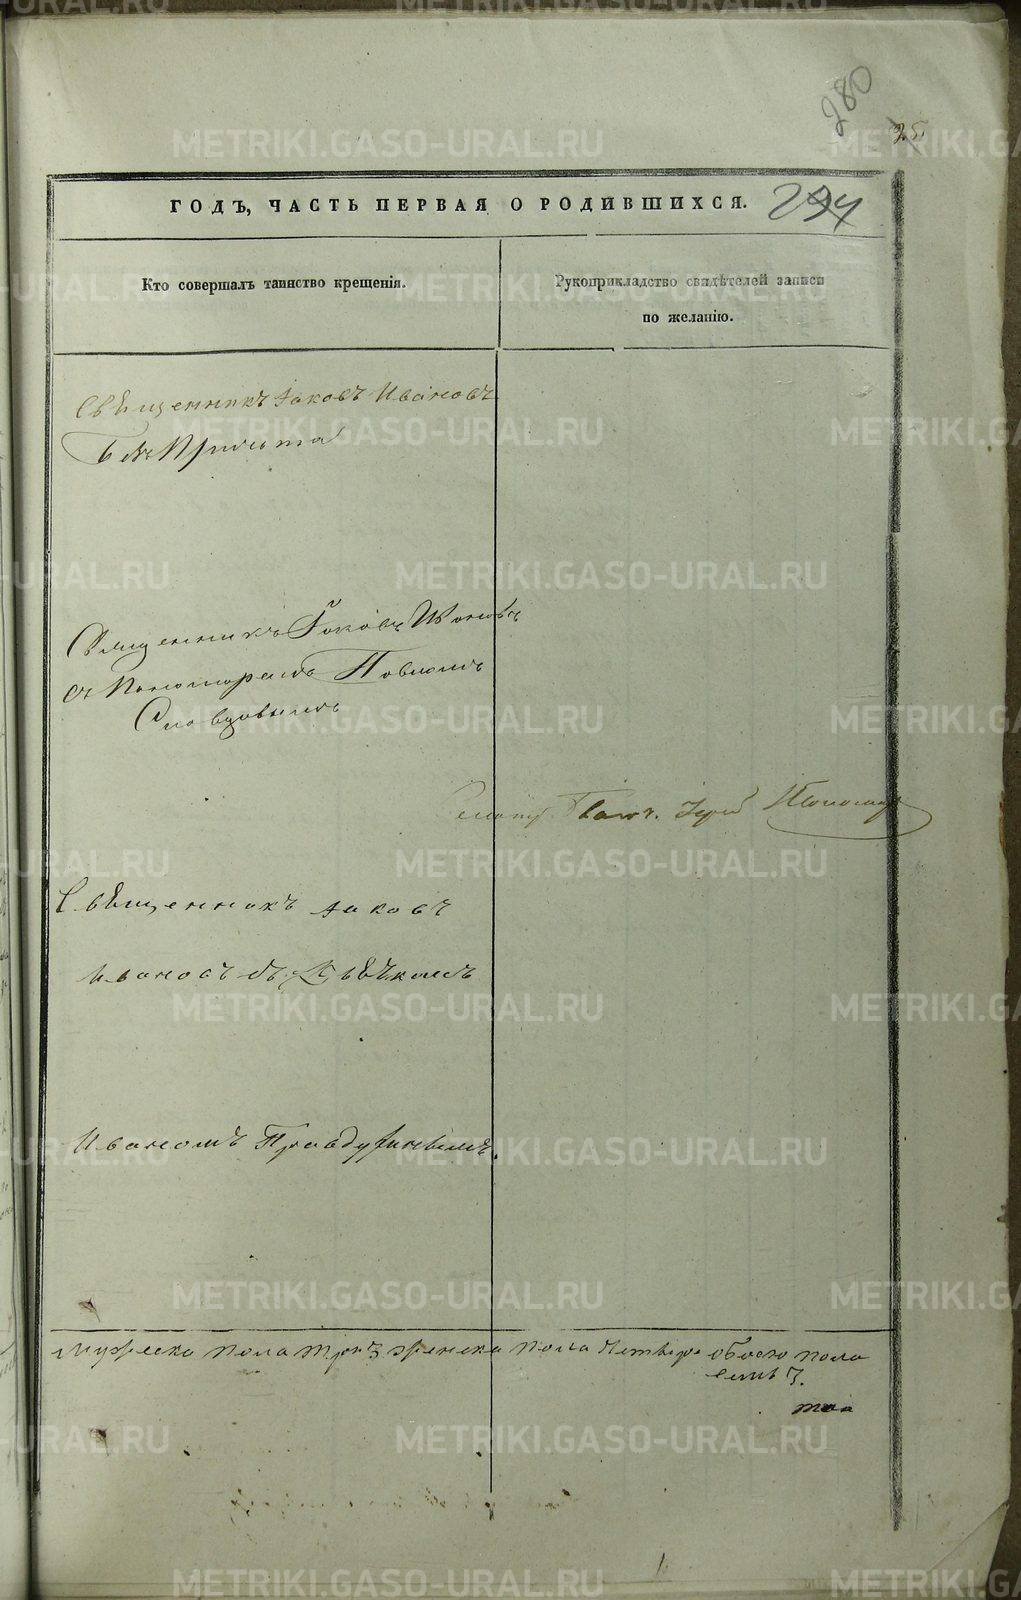 280
25
ГОДЪ, ЧАСТЬ ПЕРВАЯ О РОДИВШИХСЯ.
Кто совершалъ таинство крещенія.
Рукоприкладство свидѣтелей записи
по желанію.
Свѣщенникъ Іаковъ Ивановъ
безъ Причта
Священникъ Іаковъ Ивановъ
съ Пономаремъ Павломъ
Словцовымъ
Свѣщенникъ Іаковъ
Ивановъ съ
Иваномъ
Мужеска пола три 3 женска пола четыре обоего пола
семь 7.
METRIKI.GASO-URAL.RU